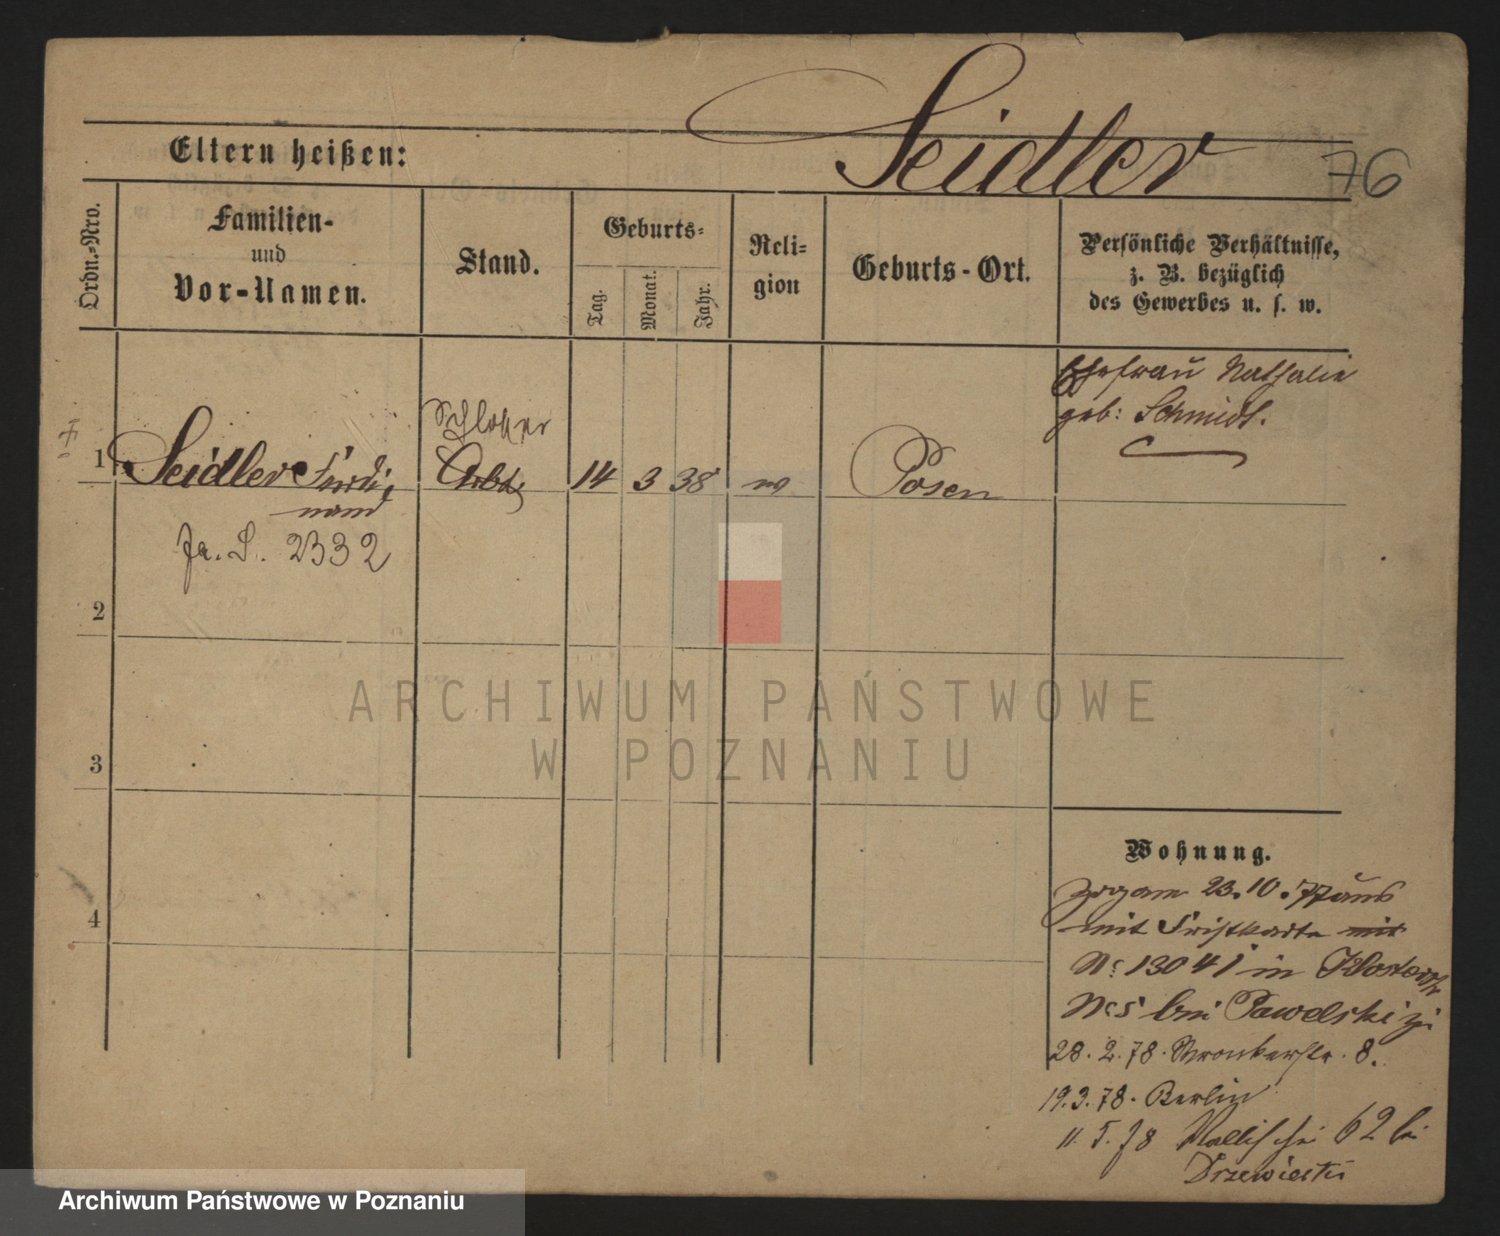 Seidler
76
Eltern heißen:
Ordn.-Nro.
Familien-
und
Vor-Namen.
Stand.
Geburts-
Tag.
Monat.
Jahr.
Reli-
gion
Geburts-Ort.
Persönliche Verhältnisse,
z. B. bezüglich
des Gewerbes u. s. w.
Ehefrau Nathalie
geb: Schmidt.
1
Seidler Ferdi-
nand
Arbt
14
3
38
Posen
2332
2
3
4
ARCHIWUM PAŃSTWOWE
W POZNANIU
Wohnung.
23.10.77 aus
mit Fristkarte mit
No 13041 in Klosterstr
No 5 bei Pawelski
28.2.78. Wronkerstr. 8.
19.3.78. Berlin
11.5.78 Wallischei 62 bei
Drzewiecki
Archiwum Państwowe w Poznaniu